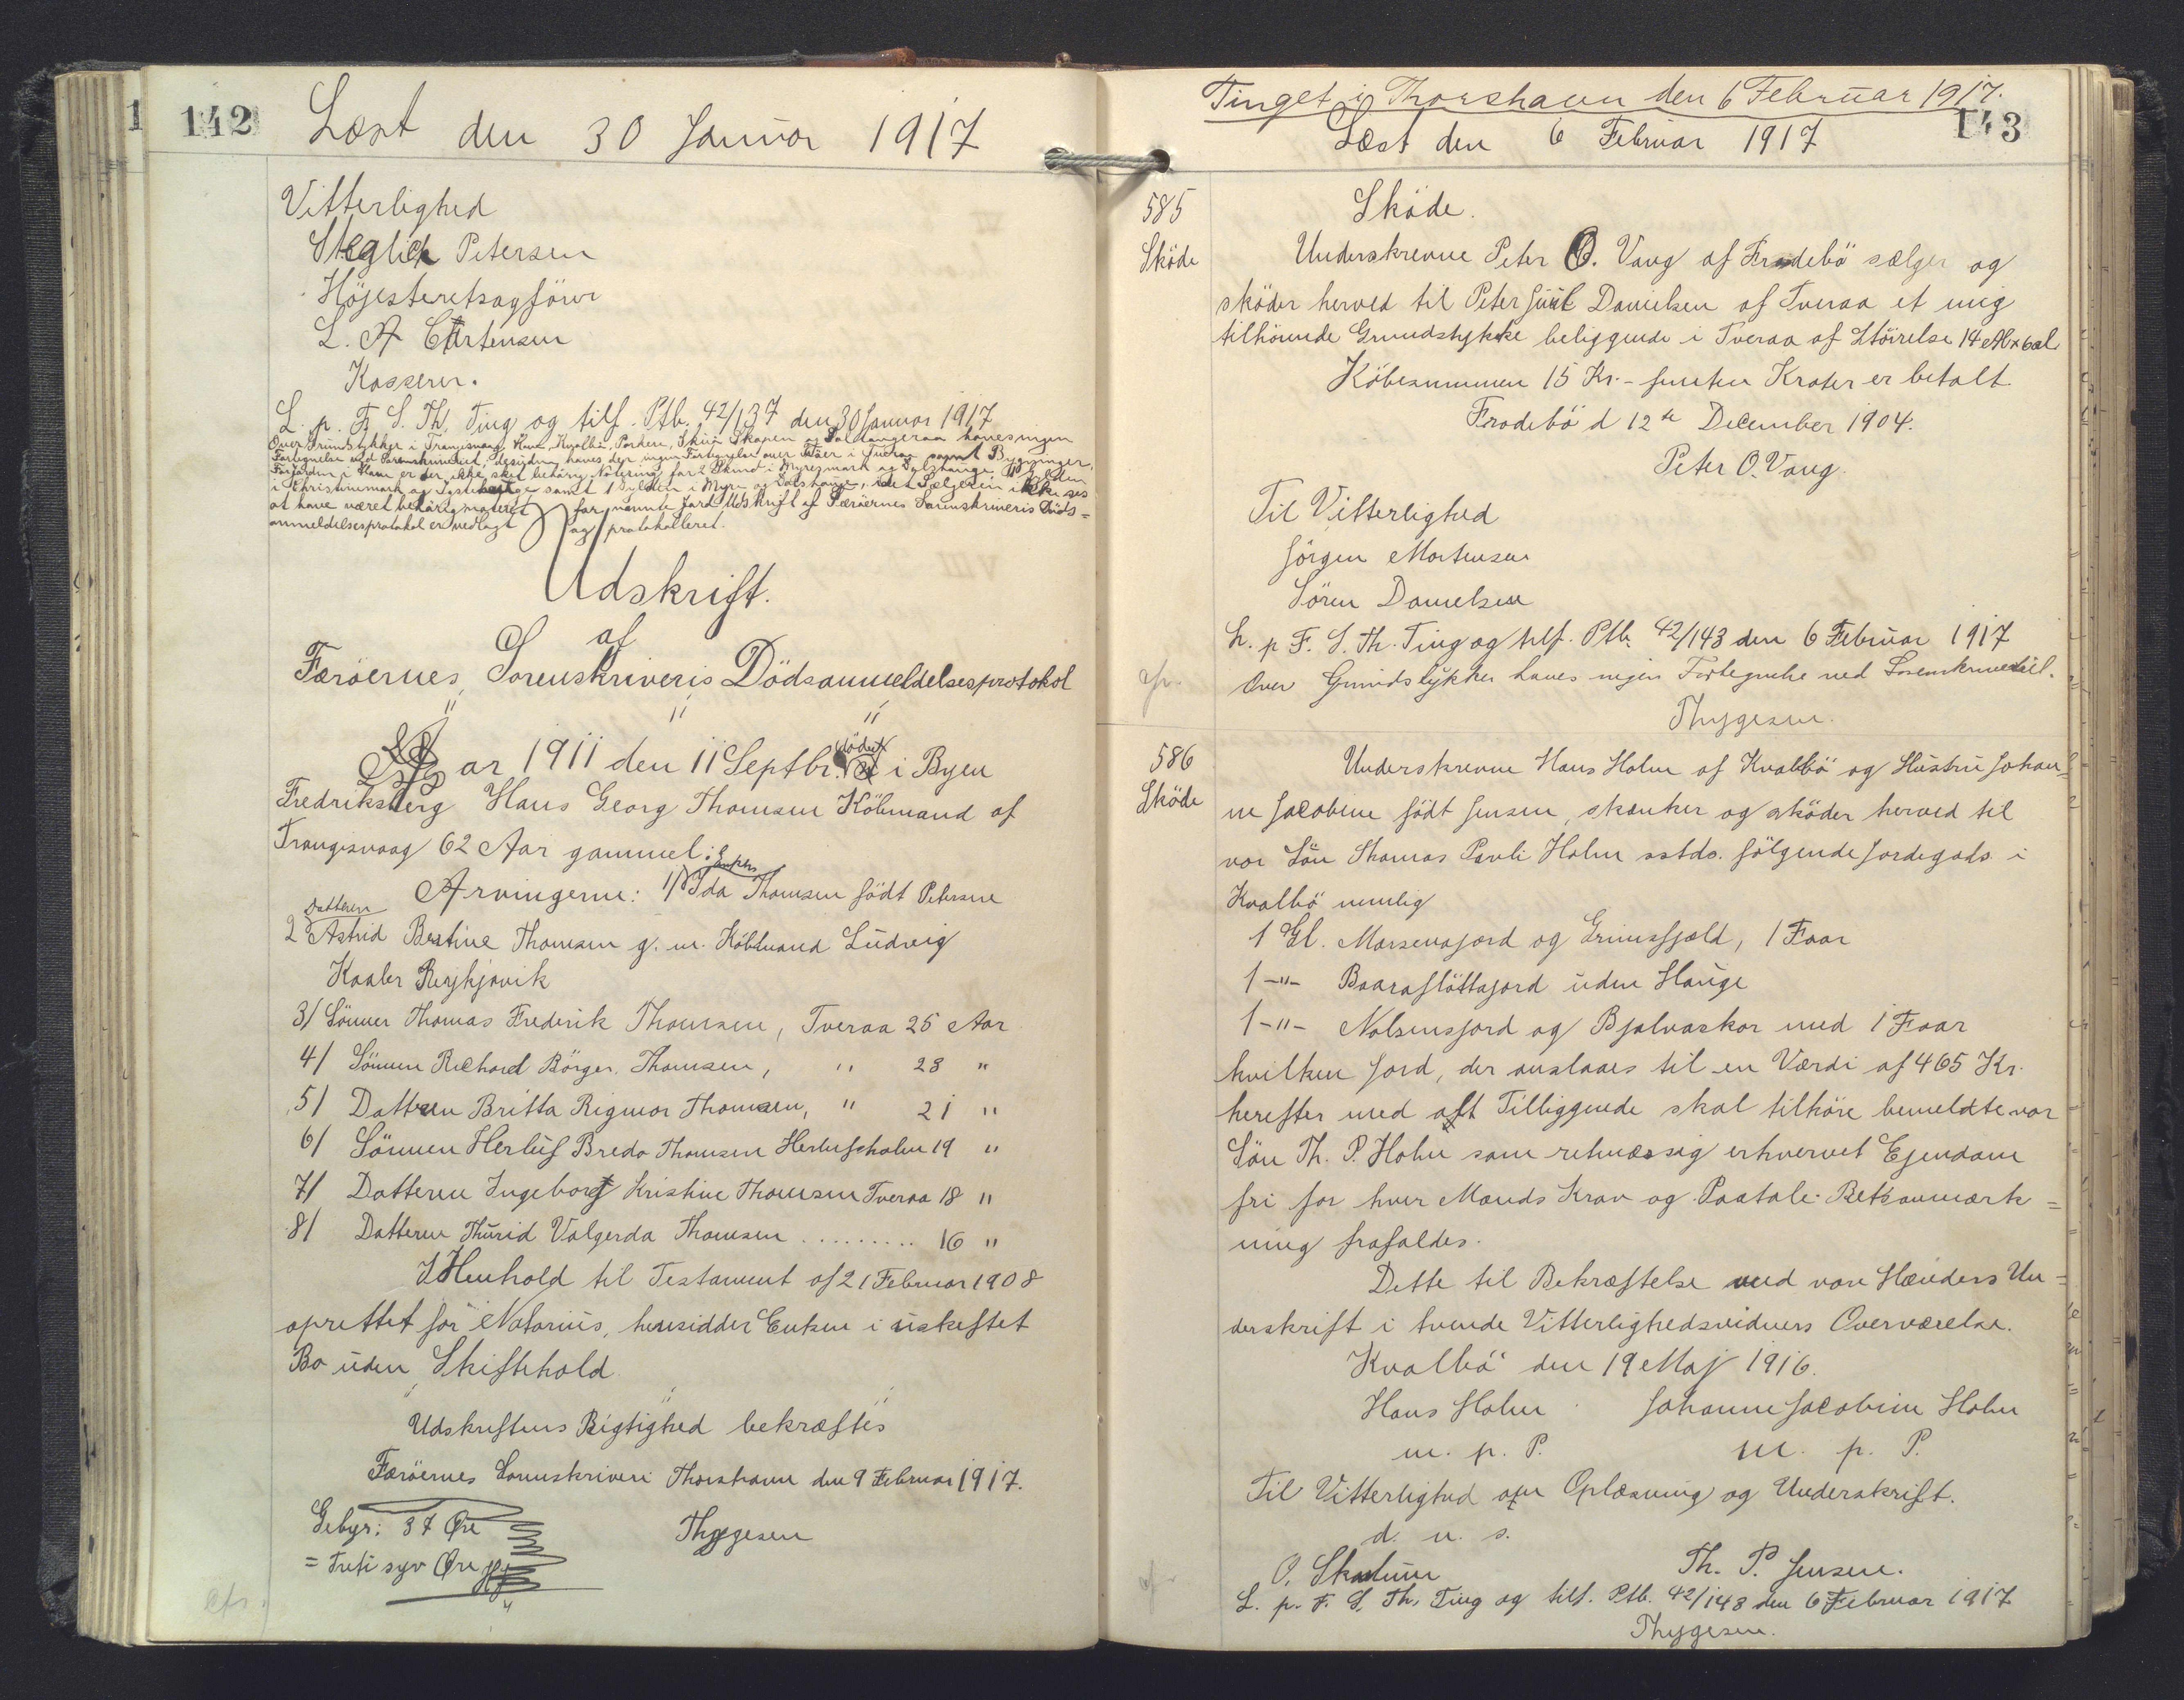 142
Læst den 30 Januar 1917
Vitterlighed
Steglich Petersen
Höjesteretsagförer
L. A Cartensen
Kasserer.
L. p. F. S. Th. Ting og tilf. Ptb. 42/137 den 30 Januar 1917
Over Grundstykker i Trangisvaag, Kvalbö, Porkere, Skapen og haves ingen
Fortegnelse ved Sorenskriveriet, desuden haves der ingen Fortegnelse over samt Bygninger.
er der ikke sket behörig Notering for 2 Skind i Myrezmark og
i Christinemark og samt 1 Gylden i Myre og idet Sælgeren ikke ses
at have været behörig noteret for nævnte Jord Udskrift af Færöernes Sorenskriveris Döds=
anmeldelsesprotokol er vedlagt og protokolleret.
Udskrift.
af
Færöernes Sorenskriveris Dödsanmeldelsesprotokol
" " "
Aar 1911 den 11 Septbr. döde i Byen
Fredriksberg Hans Georg Thomsen Köbmand af
Trangisvaag 62 Aar gammel.
Arvingerne: 1) Enken Ida Thomsen födt Petersen
2 Datteren Astrid Bertine Thomsen g. m. Köbmand Ludvig
Kaaber Reykjavik
3/ Sönnen Thomas Frederik Thomsen, Tveraa 25 Aar
4/ Sönnen Richard Börge Thomsen, " 23 "
5/ Datteren Britta Rigmor Thomsen, " 21 "
6/ Sönnen Herluf Bredo Thomsen Herlufsholm 19 "
7/ Datteren Ingeborg Kristine Thomsen Tveraa 18 "
8/ Datteren Thurid Valgerda Thomsen ......... 16 "
I Henhold til Testament af 21 Februar 1908
oprettet for Notarius, hensidder Enken i uskiftet
Bo uden Skiftehold
" " "
Udskriftens Rigtighed bekræftes
Færöernes Sorenskriveri Thorshavn den 9 Februar 1917.
Gebyr: 37 Øre
Thygesen
= Treti syv Øre
cfr.
Tinget i Thorshavn den 6 Februar 1917.
143
Læst den 6 Februar 1917
585
Sköde
Sköde.
Underskrevne Peter O. Vang af Frodebö sælger og
sköder herved til Peter Juul Danielsen af Tveraa et mig
tilhörende Grundstykke beliggende i Tveraa af Störrelse 14 Al x 6 al.
Köbesummen 15 Kr. - femten Kroner er betalt.
Frodebö d 12te December 1904.
Peter O. Vang.
Til Vitterlighed
Jörgen Mortensen
Sören Danielsen
L. p F. S. Th. Ting og tilf. Ptb. 42/143 den 6 Februar 1917
cfr.
Over Grundstykker haves ingen Fortegnelse ved Sorenskriveriet.
Thygesen.
586
Sköde
Underskrevne Hans Holm af Kvalbö og Hustru Johan=
ne Jacobine födt Jensen, skænker og sköder herved til
vor Sön Thomas Pauli Holm sstds. fölgende Jordegods i
Kvalbö nemlig
1 Gl. Morsenajord og Grimsfjæld, 1 Faar
1 -"- Baaraflöttajord uden Hauge
1 -"- Nolsensjord og Bjalvaskor med 1 Faar
hvilken Jord, der anslaaes til en Værdi af 465 Kr.
herefter med alt Tilliggende skal tilhöre bemeldte vor
Sön Th. P. Holm som retmæssig erhvervet Ejendom
fri for hver Mands Krav og Paatale. Retsanmærk=
ning frafaldes.
Dette til Bekræftelse med vore Hænders Un=
derskrift i tvende Vitterlighedsvidners Overværelse.
Kvalbö den 19 Maj 1916.
Hans Holm Johanne Jacobine Holm
m. p. P. m. p. P.
Til Vitterlighed om Oplæsning og Underskrift.
d. u. s.
O. Skaalum Th. P. Jensen.
cf.
L. p. F. S. Th. Ting og tilf. Ptb. 42/143 den 6 Februar 1917
Thygesen.